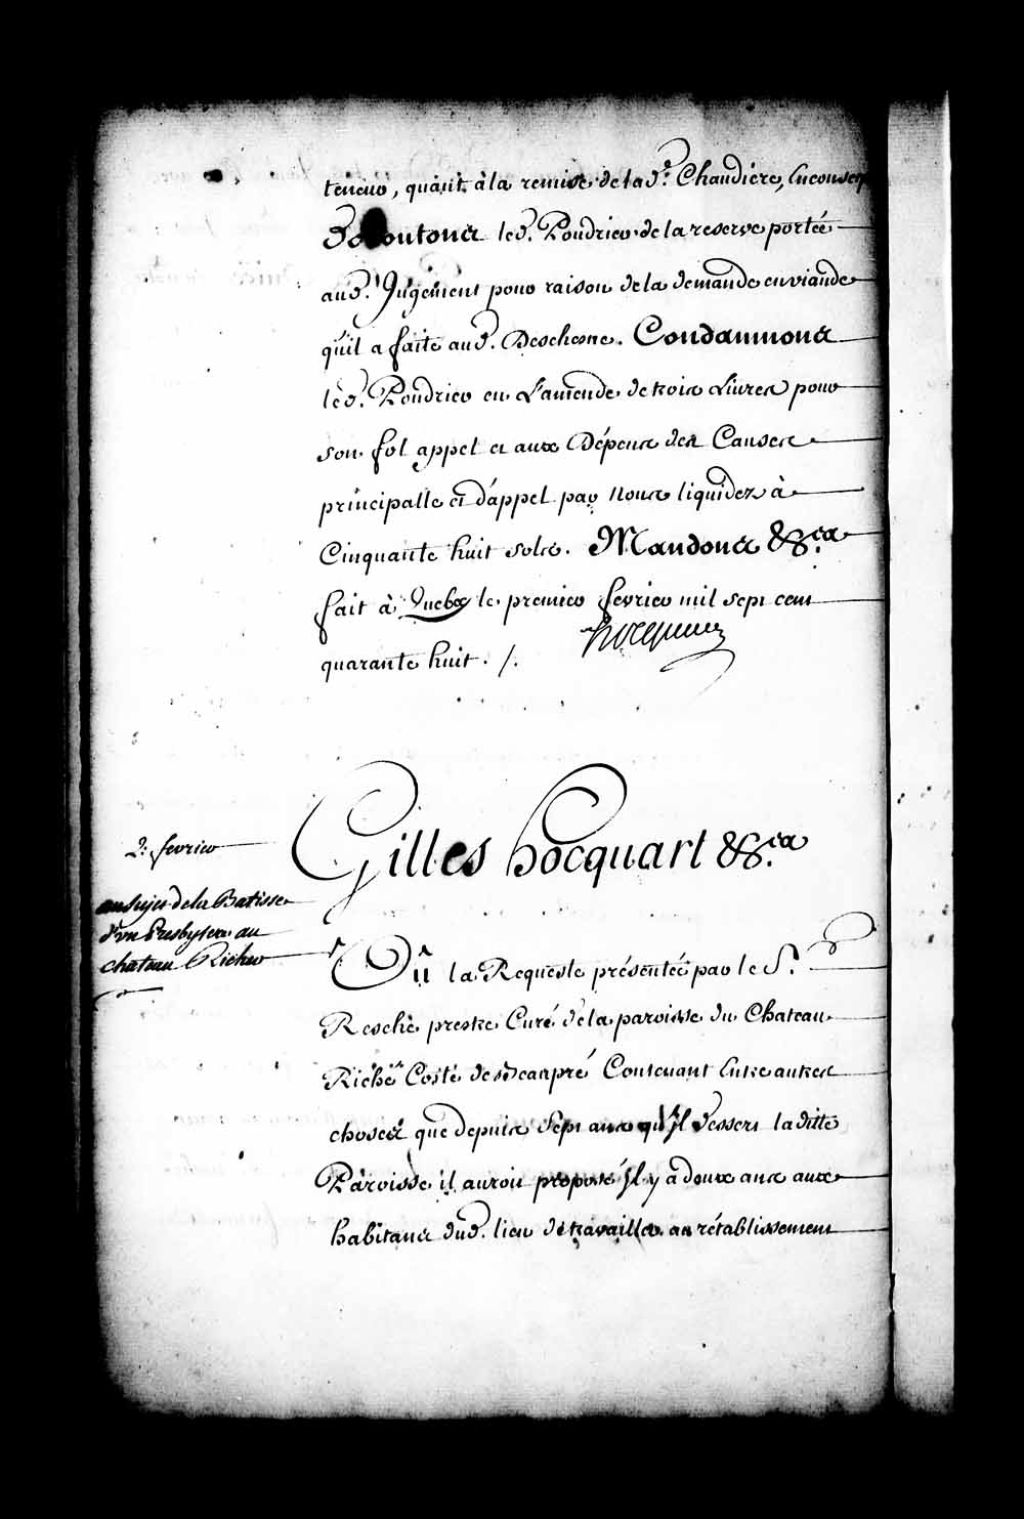 teneur, quant à la remise de la d.e Chaudière, En conseq
Deboutons led. Poudrier de la reserve portée
aud. Jugement pour raison de la demande en viande
qu'il a faite aud. Deschesne. Condamnons
led. Poudrier en L'amende de trois Livres pour
son fol appel et aux Dépens des Causes
principalle et d'appel par Nous liquidez à
Cinquante huit sols. Mandons &c.a
fait à Quebec le premier fevrier mil sept cent
quarante huit. /.
hocquart
Gilles hocquart &c.a
2. fevrier
au Sujet de la Batisse
d'un Presbytere au
chateau Richer
Vû la Requeste présentée par le S.r
Resche prestre Curé de la paroisse du Chateau
Richer Coste de Beaupré Contenant Entre autres
choses que depuis Sept ans qu'Il dessert la ditte
Paroisse il auroit proposé Il y a deux ans aux
habitans dud. lieu de travailler au rétablissement